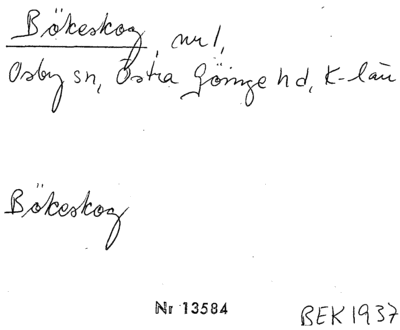 Bökeskog, nr 1,
Osby sn, Östra Göinge hd, K-län
Bökeskog
Nr 13584
BEK 1937